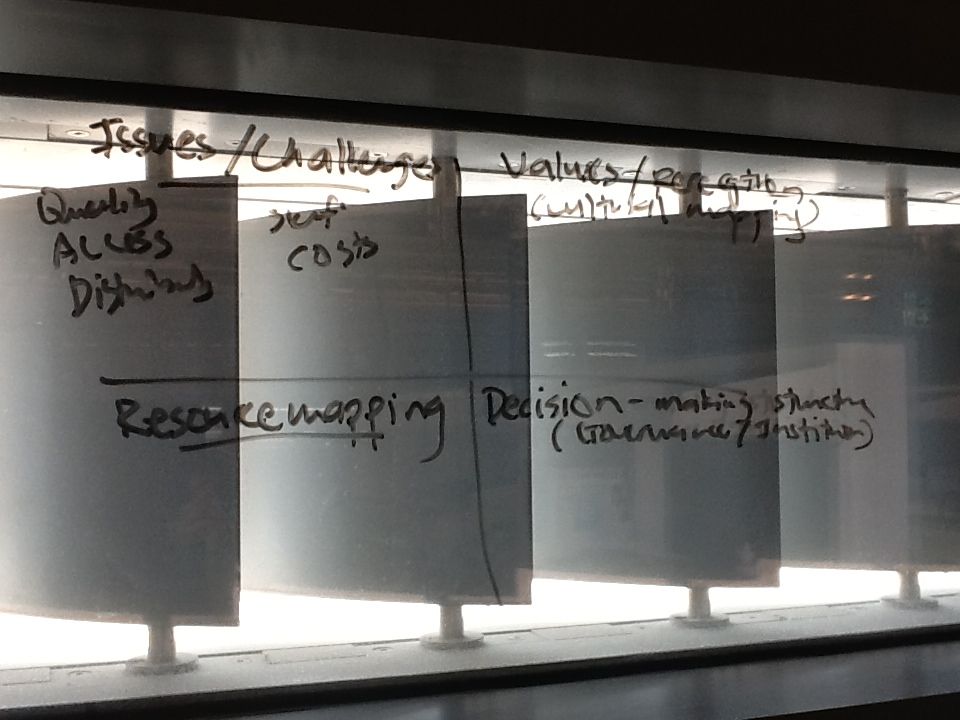 Issues / Challenges
Quality
ACCESS
costs
Values / perception
(cultural mapping)
Resource mapping
Decision-making structure
(Governance / Institution)